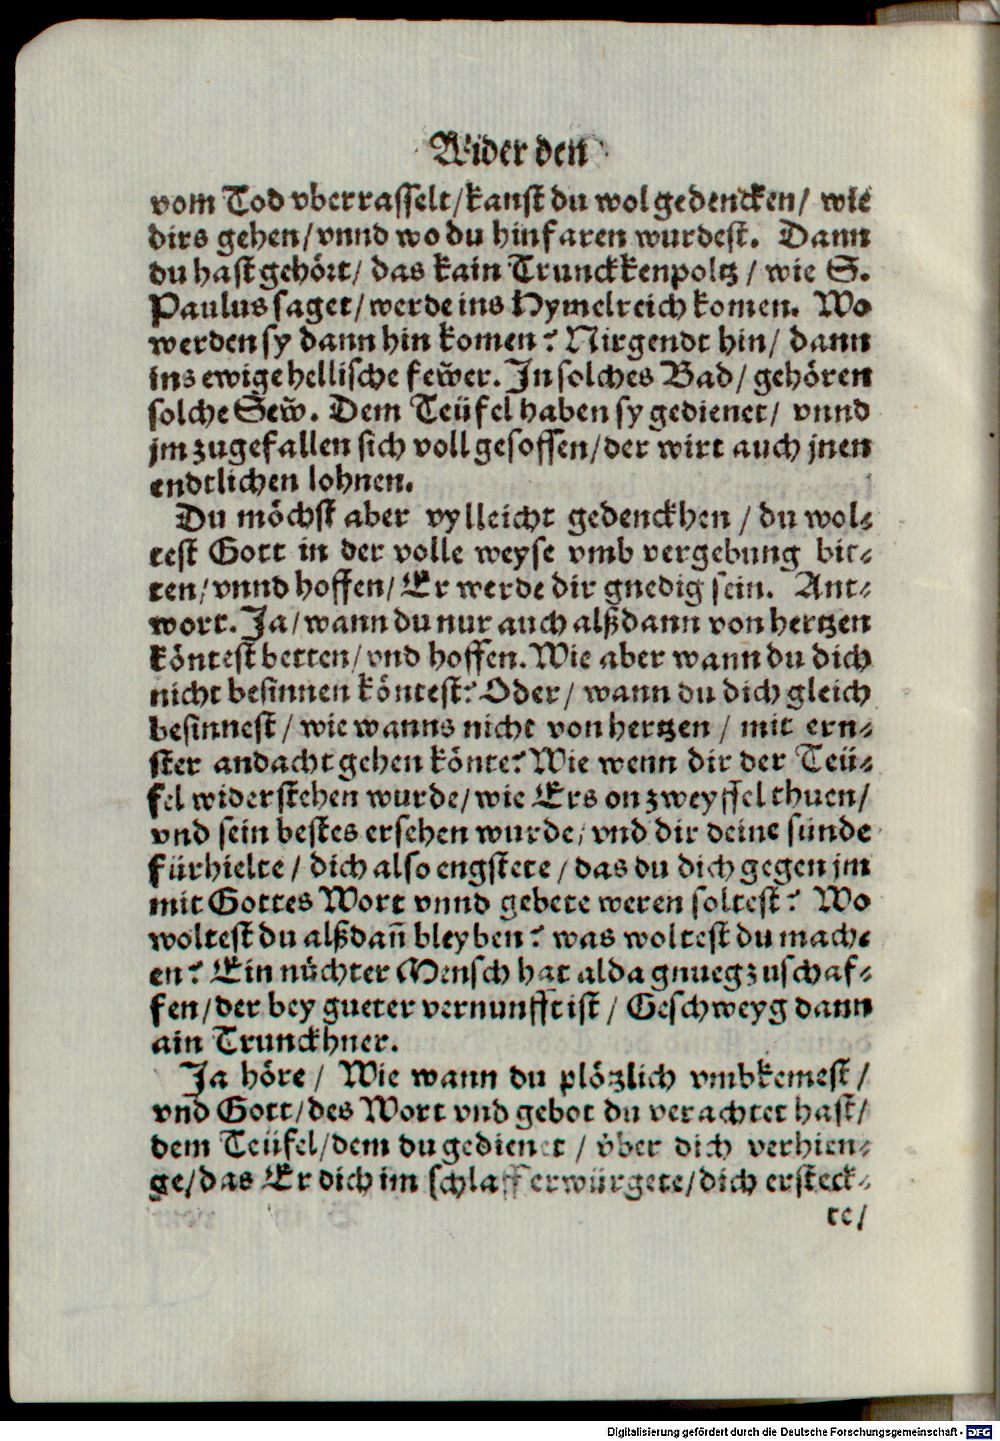 Wider den
vom Tod vberrasselt/kanst du wol gedencken/ wie
dirs gehen/vnnd wo du hinfaren wurdest. Dann
du hast gehört/ das kain Trunckkenpoltz/ wie S.
Paulus saget/werde ins Hymelreich komen. Wo
werden sy dann hin komen? Nirgendt hin/ dann
ins ewige hellische fewer. In solches Bad/ gehören
solche Sew. Dem Teüfel haben sy gedienet/ vnnd
jm zugefallen sich voll gesoffen/der wirt auch jnen
endtlichen lohnen.
Du möchst aber vylleicht gedenckhen/du wol⸗
test Gott in der volle weyse vmb vergebung bit⸗
ten/vnnd hoffen/ Er werde dir gnedig sein. Ant⸗
wort. Ja/wann du nur auch alßdann von hertzen
köntest betten/vnd hoffen. Wie aber wann du dich
nicht besinnen köntest? Oder/ wann du dich gleich
besinnest/wie wanns nicht von hertzen/ mit ern⸗
ster andacht gehen könte? Wie wenn dir der Teü⸗
fel widerstehen wurde/wie Ers on zweyffel thuen/
vnd sein bestes ersehen wurde/vnd dir deine sünde
fürhielte/dich also engstete/das du dich gegen jm
mit Gottes Wort vnnd gebete weren soltest? Wo
woltest du alßdañ bleyben? was woltest du mach⸗
en? Ein nüchter Mensch hat alda gnueg zuschaf⸗
fen/der bey gueter vernunfft ist/ Geschweyg dann
ain Trunckhner.
Ja höre/ Wie wann du plötzlich vmbkemest/
vnd Gott/des Wort vnd gebot du verachtet hast/
dem Teüfel/dem du gedienet/ über dich verhien⸗
ge/das Er dich im schlaff erwürgete/dich ersteck⸗
te/
Digitalisierung gefördert durch die Deutsche Forschungsgemeinschaft - DFG